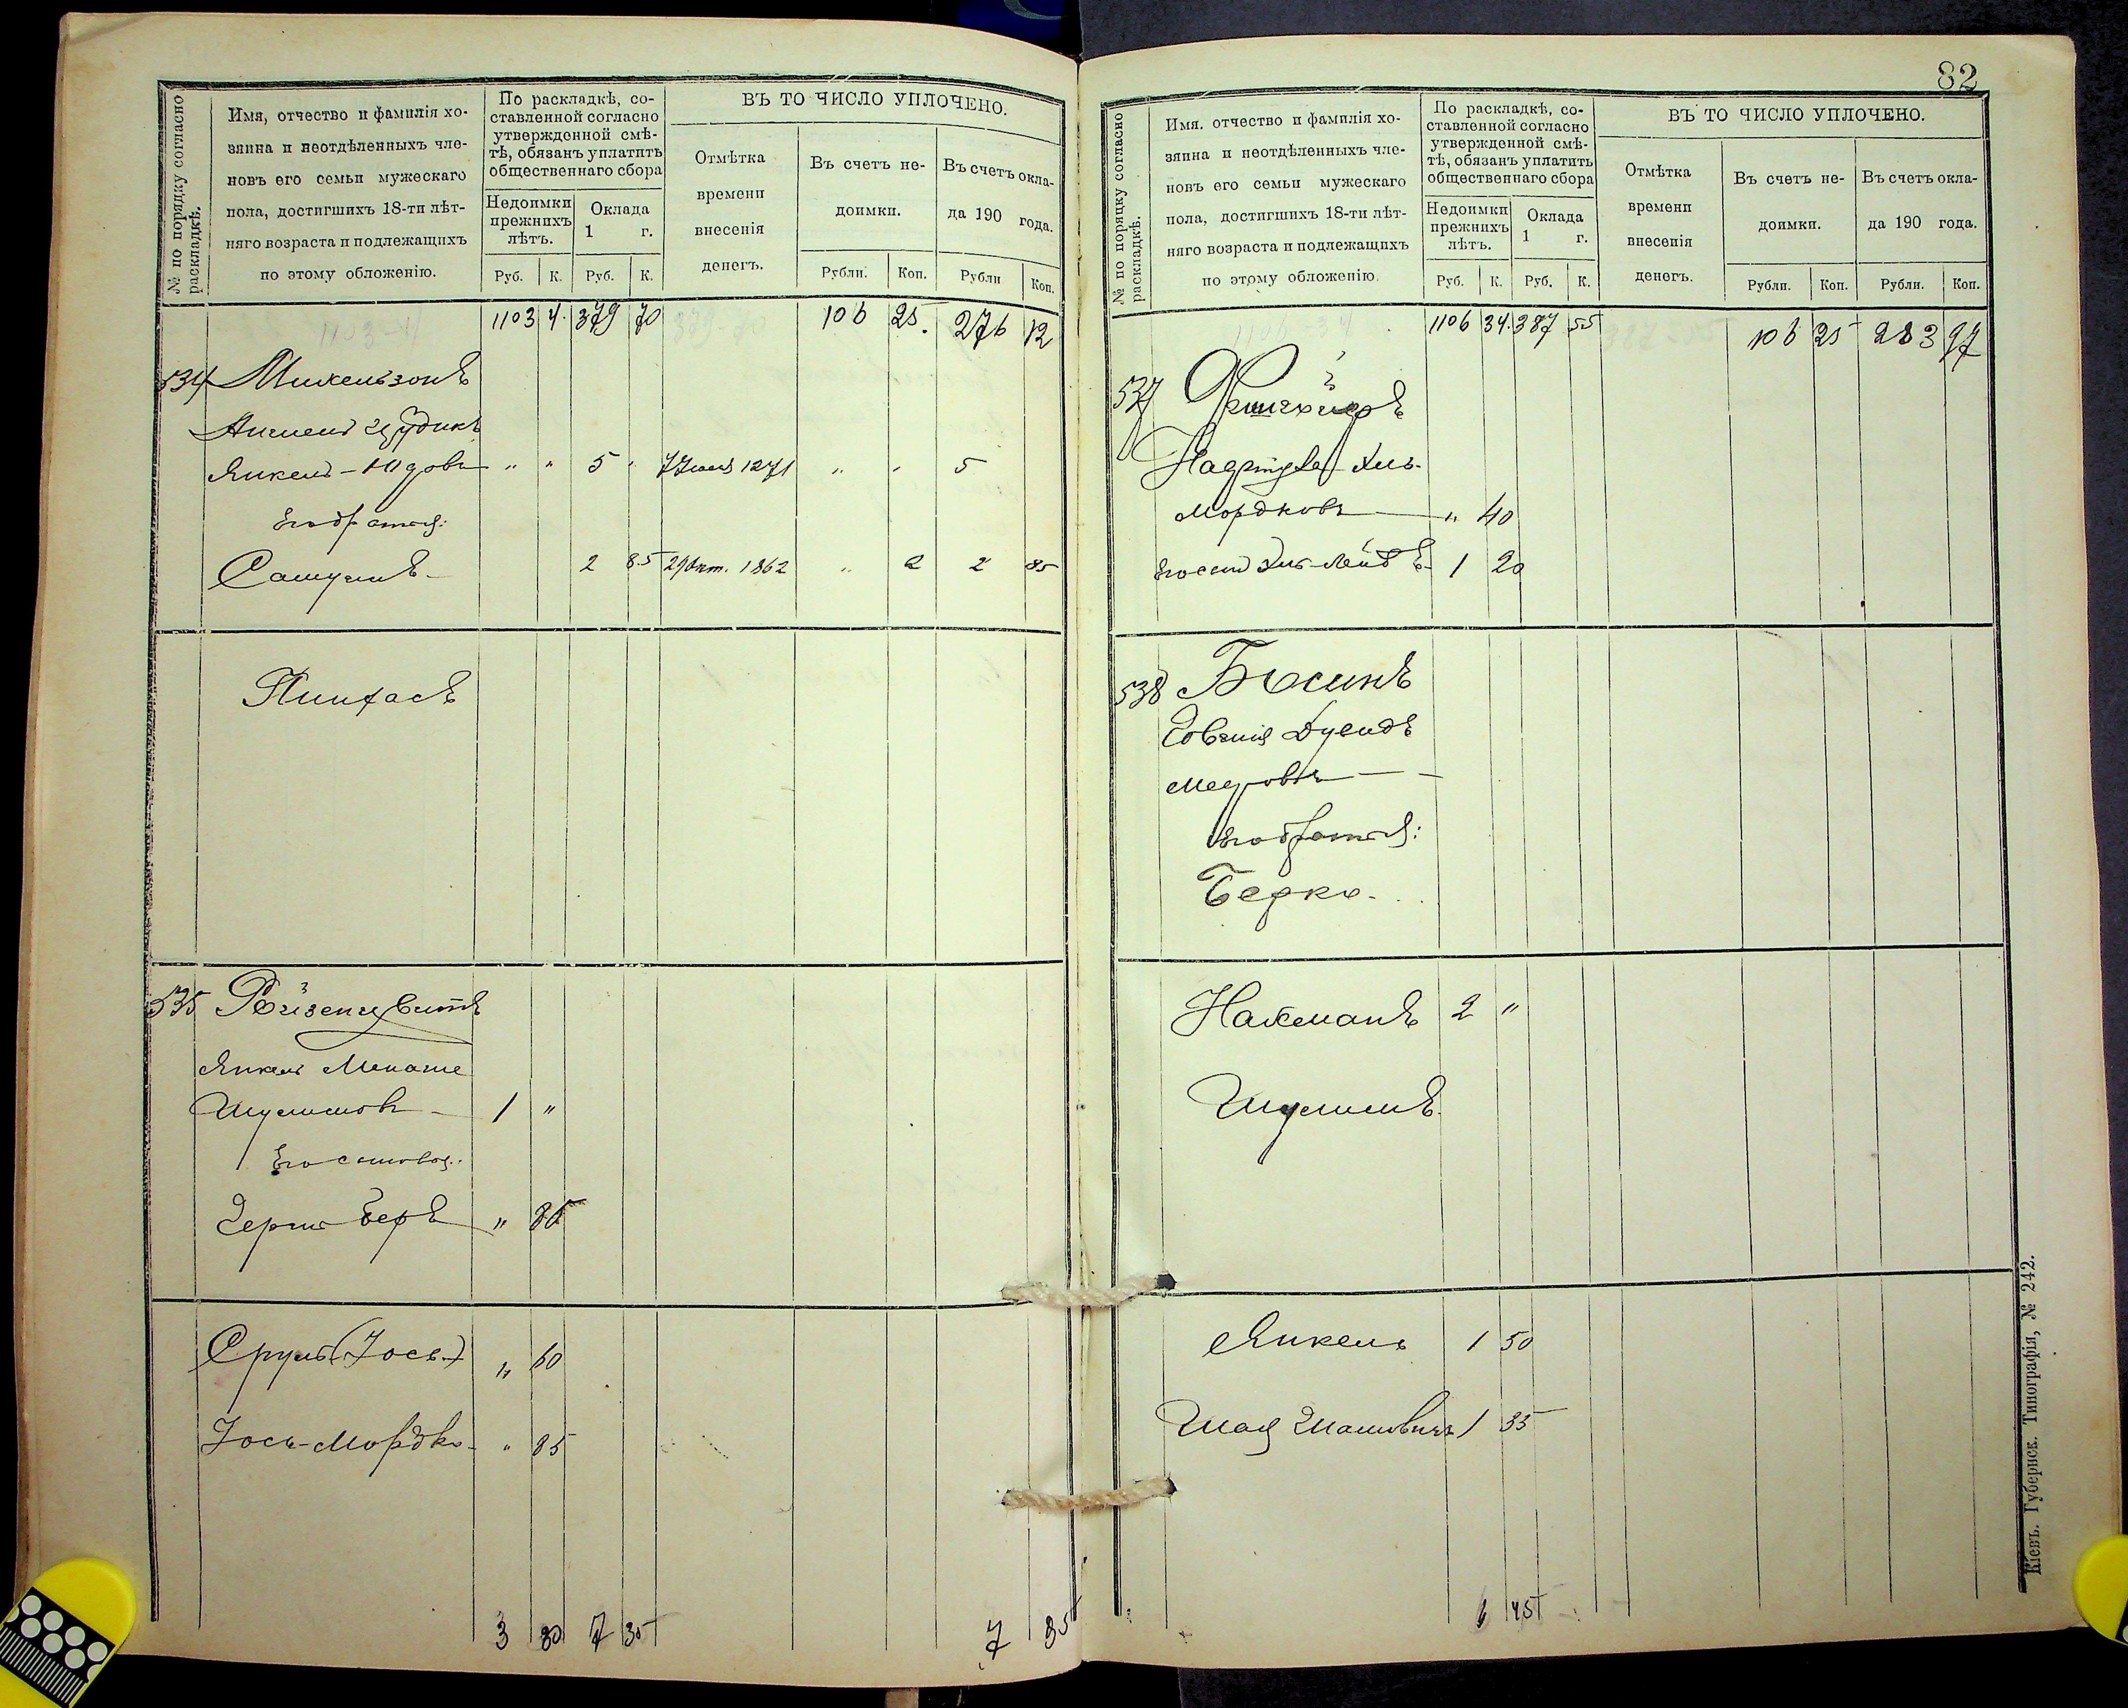 № по порядку согласно раскладкѣ.
Имя, отчество и фамилія хо-
зяина и неотдѣленныхъ чле-
новъ его семьи мужескаго
пола, достигшихъ 18-ти лѣт-
няго возраста и подлежащихъ
по этому обложенію.
По раскладкѣ, со-
ставленной согласно
утвержденной смѣ-
тѣ, обязанъ уплатить
общественнаго сбора
Недоимки прежнихъ лѣтъ.
Оклада 1 г.
Руб. К. Руб. К.
ВЪ ТО ЧИСЛО УПЛОЧЕНО.
Отмѣтка
времени
внесенія
денегъ.
Въ счетъ не-
доимки.
Рубли. Коп.
Въ счетъ окла-
да 190 года.
Рубли Коп.
1103 4. 379 70 106 25. 276 12
534 Михельзонъ
Янкель-Юдовъ " " 5 " " " 5
Его братья:
Самуилъ 2 85 29 Окт. 1862 " 2 2 85
Пинхасъ
535 Ройзенцвитъ
Янкель Менаше
Шулимовъ 1 "
Его сыновья:
Герш Беръ " 85
Сруль (Іось) " 60
Іось-Мордко " 85
3 30 7 35 7 85
82
№ по порядку согласно раскладкѣ.
Имя. отчество и фамилія хо-
зяина и неотдѣленныхъ чле-
новъ его семьи мужескаго
пола, достигшихъ 18-ти лѣт-
няго возраста и подлежащихъ
по этому обложенію.
По раскладкѣ, со-
ставленной согласно
утвержденной смѣ-
тѣ, обязанъ уплатить
общественнаго сбора
Недоимки прежнихъ лѣтъ.
Оклада 1 г.
Руб. К. Руб. К.
ВЪ ТО ЧИСЛО УПЛОЧЕНО.
Отмѣтка
времени
внесенія
денегъ.
Въ счетъ не-
доимки.
Рубли. Коп.
Въ счетъ окла-
да 190 года.
Рубли. Коп.
1106 34. 387 55 106 25 283 97
537
Мордковъ " 40
Его сынъ 1 20
538 Бысинъ
Мееровъ
Его братья:
Берко.
Нахманъ 2 "
Шулимъ.
Янкель 1 50
Шая 1 35
6 45
Кіевъ. Губернск. Типографія, № 242.